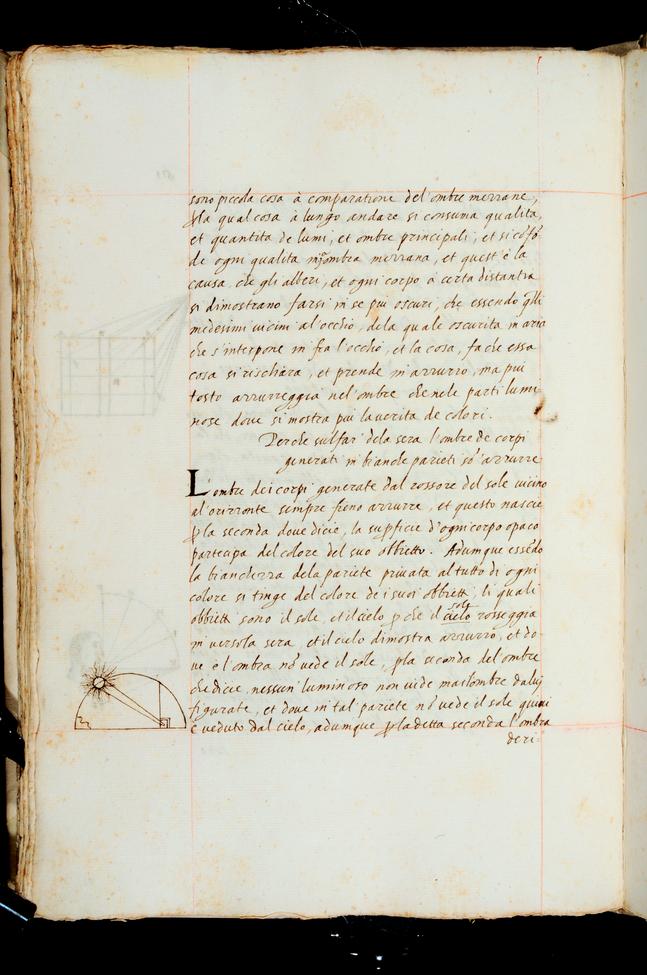 sono piccola cosa à comparatione del'ombre mezzane,
p̱la qual cosa à lungo andare si consuma qualità,
et quantità de lumi, et ombre principali, et si cõfõ
de ogni qualità in ombra mezzana, et quest'è la
causa, che gli alberi, et ogni corpo à certa distantia
si dimostrano farsi in se più oscuri, che essendo q̃lli
medesimi vicini al'occhio, dela quale oscurità in aria
che s'interpone in fra l'occhio, et la cosa, fa che essa
cosa si rischiara, et prende in azzurro, ma più
tosto azzurreggia nel'ombre che nele parti lumi
nose dove si mostra più la verità de colori.
Perche sul far dela sera l'ombre de corpi
generati in bianche parieti sõ azzurre
L'ombre dei corpi generate dal rossore del sole vicino
al'orizzonte sempre fieno azzurre, et questo nascie
p̱ la seconda dove dicie, la sup̱ficie d'ogni corpo opaco
partecipa del colore del suo obbietto. Adumque essẽdo
la bianchezza dela pariete privata al tutto di ogni
colore si tinge del colore de i suoi obbietti, li quali
obbietti sono il sole, et il cielo p̱ che il cielo sole rosseggia
in verso la sera, et il cielo dimostra azzurro, et do
ve è l'ombra nõ vede il sole, p̱la seconda del'ombre
che dicie, nessun luminoso non vide mai l'ombre da lui
figurate, et dove in tal pariete nõ vede il sole quivi
è veduto dal cielo, adumque p̱ la detta seconda l'ombra
deri-